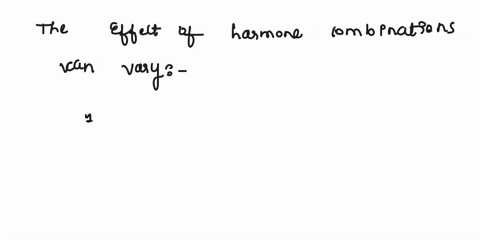 The Effect of harmone combinations
can vary:-
1